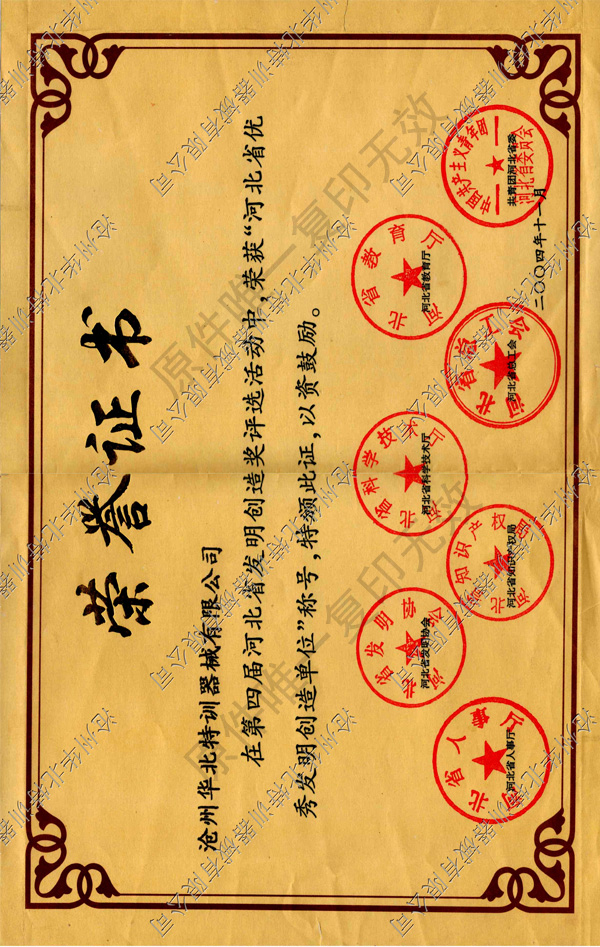 荣誉证书
沧州华北特训器械有限公司
在第四届河北省发明创造奖评选活动中，荣获“河北省优
秀发明创造单位”称号，特颁此证，以资鼓励。
河北省发明协会
河北省科学技术厅
河北省教育厅
河北省人事厅
河北省知识产权局
河北省总工会
共青团河北省委
二〇〇四年十一月
原件唯一复印无效
原件唯一复印无效
沧州华北特训器械有限公司